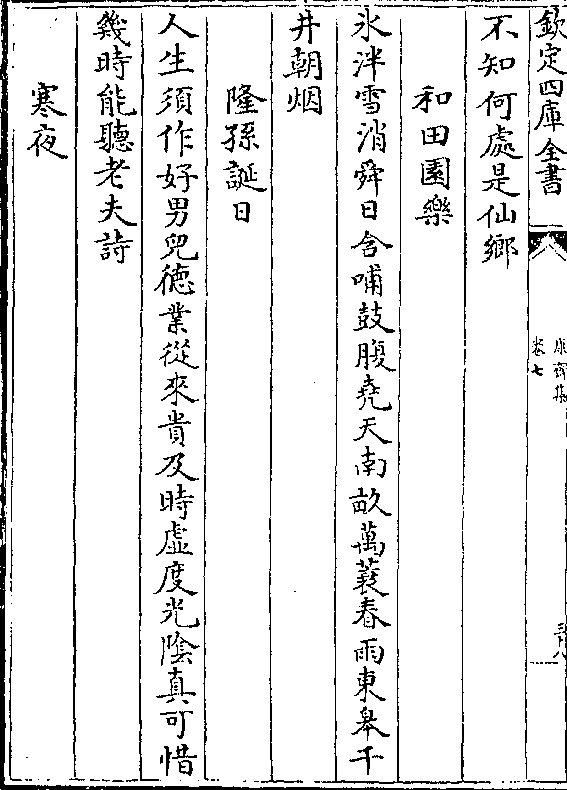 欽定四庫全書
康齋集
卷七
不知何處是仙鄉
和田園樂
氷泮雪消舜日含哺鼓腹堯天南畝萬蓑春雨東皋千
井朝烟
隆孫誕日
人生須作好男兒徳業從來貴及時虛度光陰真可惜
幾時能聽老夫詩
寒夜